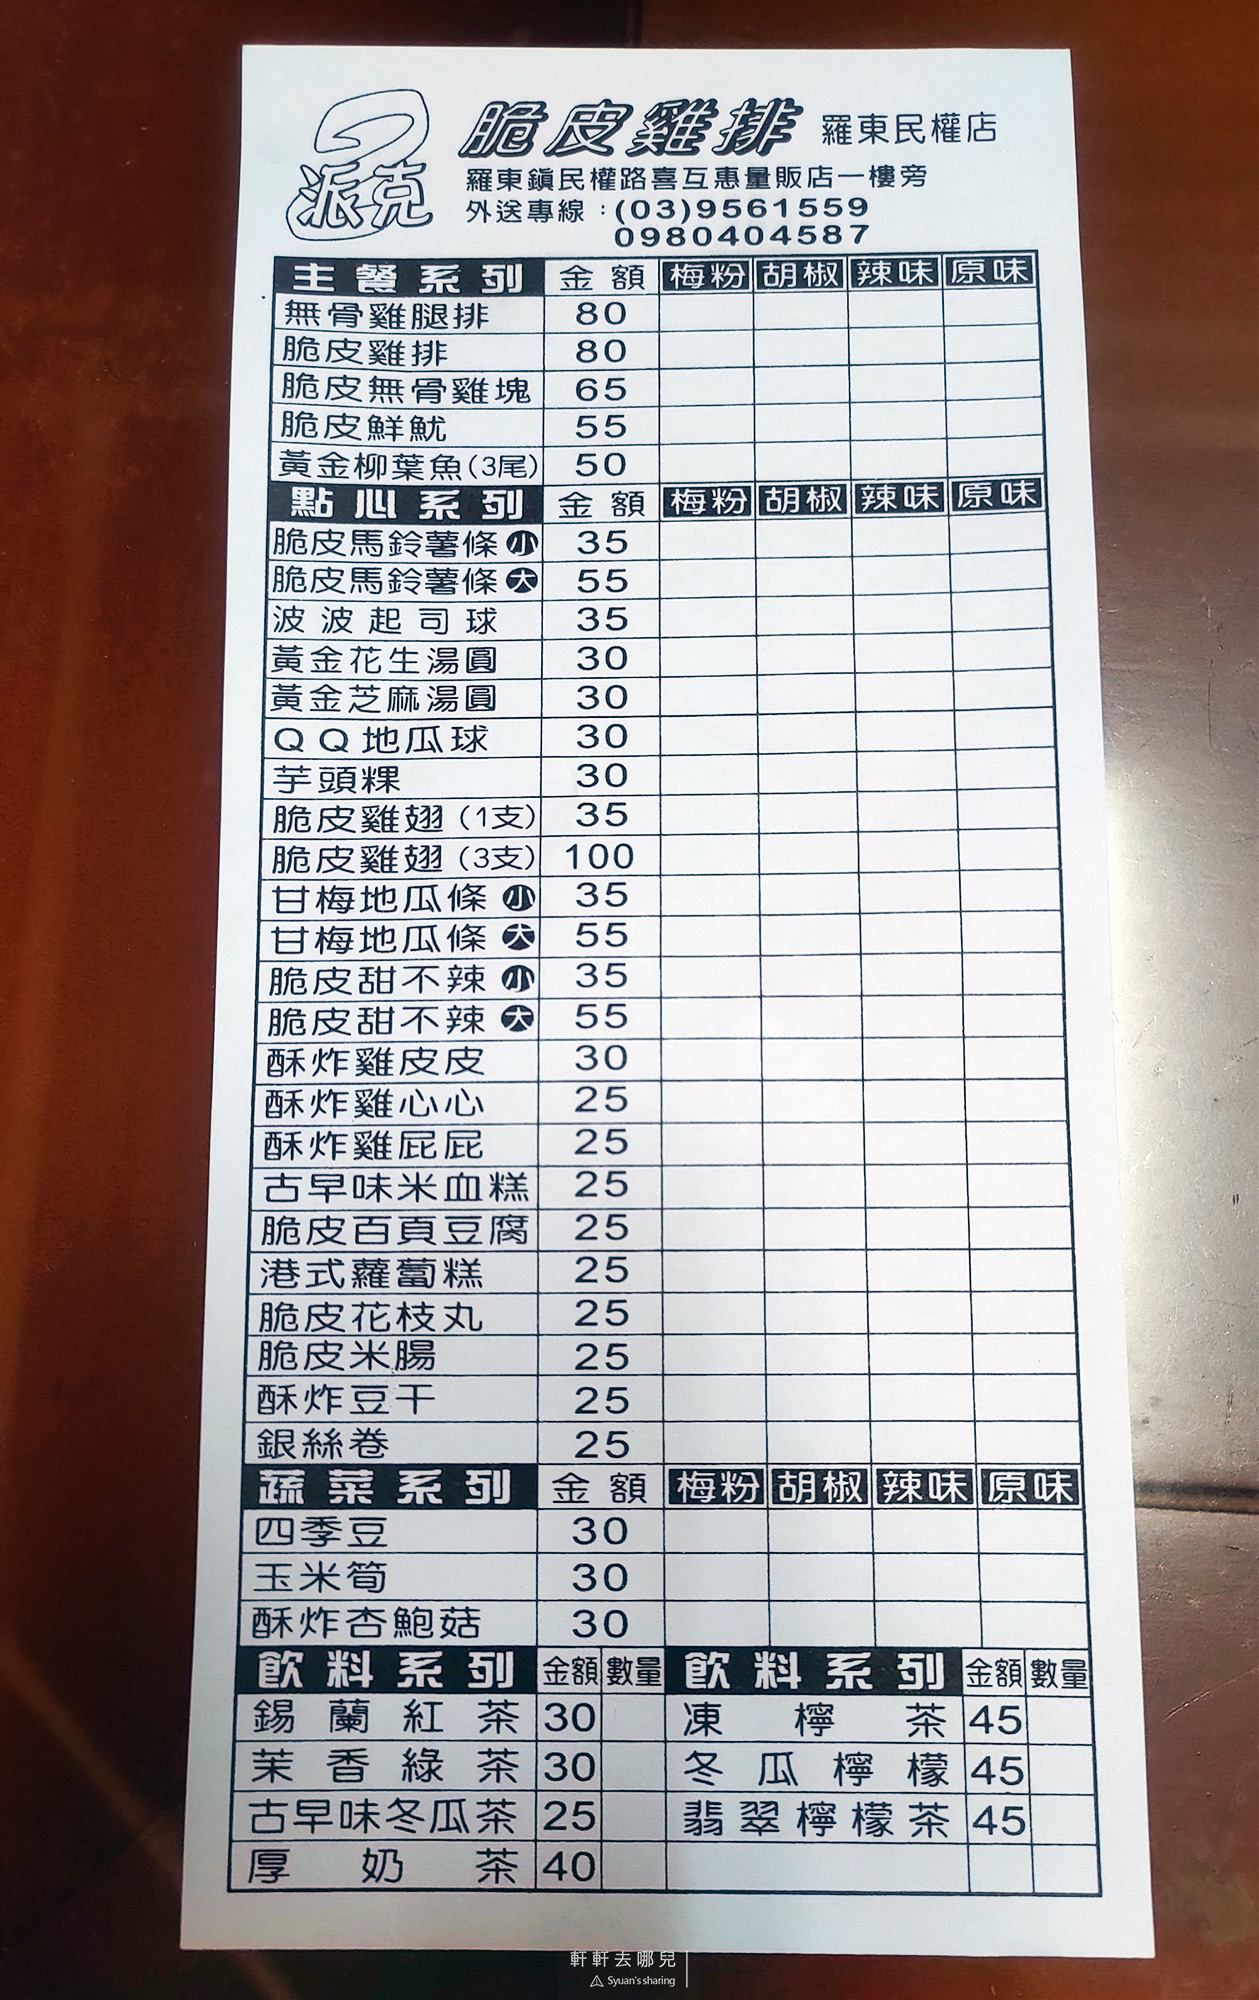 派克
脆皮雞排 羅東民權店
羅東鎮民權路喜互惠量販店一樓旁
外送專線：(03)9561559
0980404587
主餐系列 金額 梅粉 胡椒 辣味 原味
無骨雞腿排 80
脆皮雞排 80
脆皮無骨雞塊 65
脆皮鮮魷 55
黃金柳葉魚(3尾) 50
點心系列 金額 梅粉 胡椒 辣味 原味
脆皮馬鈴薯條 小 35
脆皮馬鈴薯條 大 55
波波起司球 35
黃金花生湯圓 30
黃金芝麻湯圓 30
QQ地瓜球 30
芋頭粿 30
脆皮雞翅(1支) 35
脆皮雞翅(3支) 100
甘梅地瓜條 小 35
甘梅地瓜條 大 55
脆皮甜不辣 小 35
脆皮甜不辣 大 55
酥炸雞皮皮 30
酥炸雞心心 25
酥炸雞屁屁 25
古早味米血糕 25
脆皮百頁豆腐 25
港式蘿蔔糕 25
脆皮花枝丸 25
脆皮米腸 25
酥炸豆干 25
銀絲卷 25
蔬菜系列 金額 梅粉 胡椒 辣味 原味
四季豆 30
玉米筍 30
酥炸杏鮑菇 30
飲料系列 金額 數量 飲料系列 金額 數量
錫蘭紅茶 30 凍檸茶 45
茉香綠茶 30 冬瓜檸檬 45
古早味冬瓜茶 25 翡翠檸檬茶 45
厚奶茶 40
軒軒去哪兒
Syuan's sharing